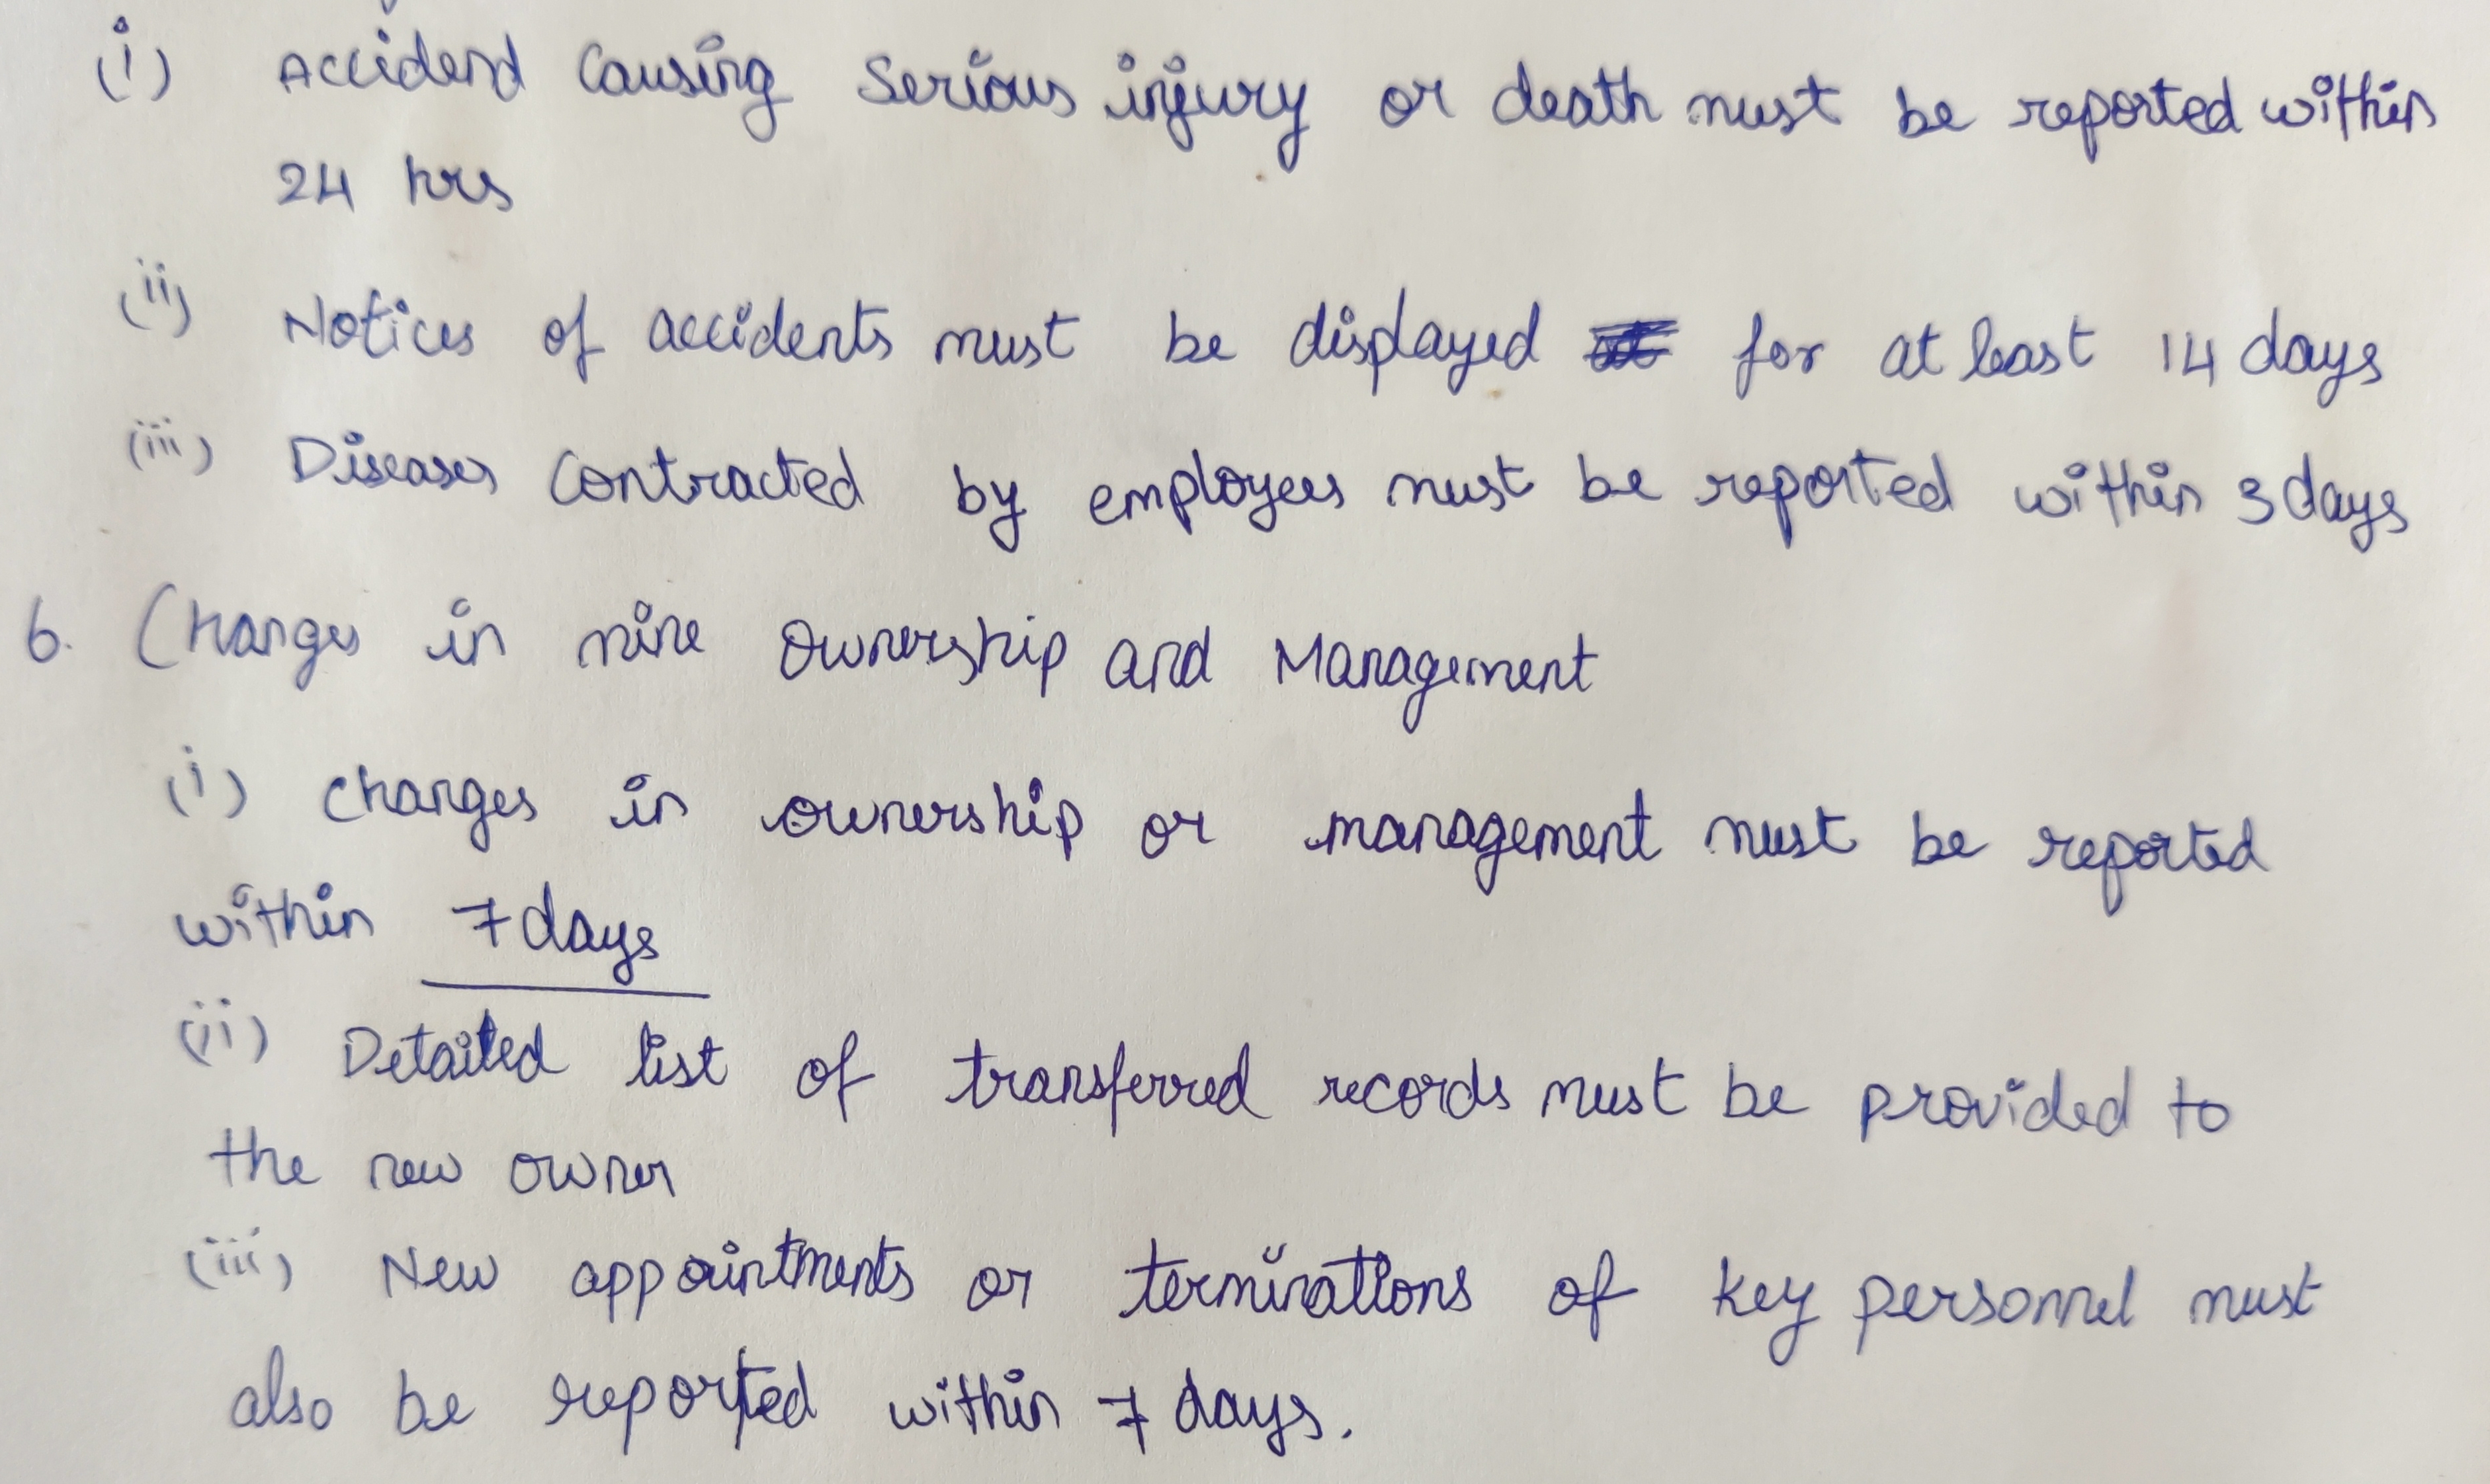 (i) Accidend Causing Serious injury or death must be reported within
24 hrs
(ii) Notices of accidents must be displayed for at least 14 days
(iii) Diseases Contracted by employees must be reported within 3 days
6. Changes in mine Ownership and Management
(i) Changes in ownership or management must be reported
within 7 days
(ii) Detailed list of transferred records must be provided to
the new owner
(iii) New appointments or terminations of key personnel must
also be reported within 7 days.